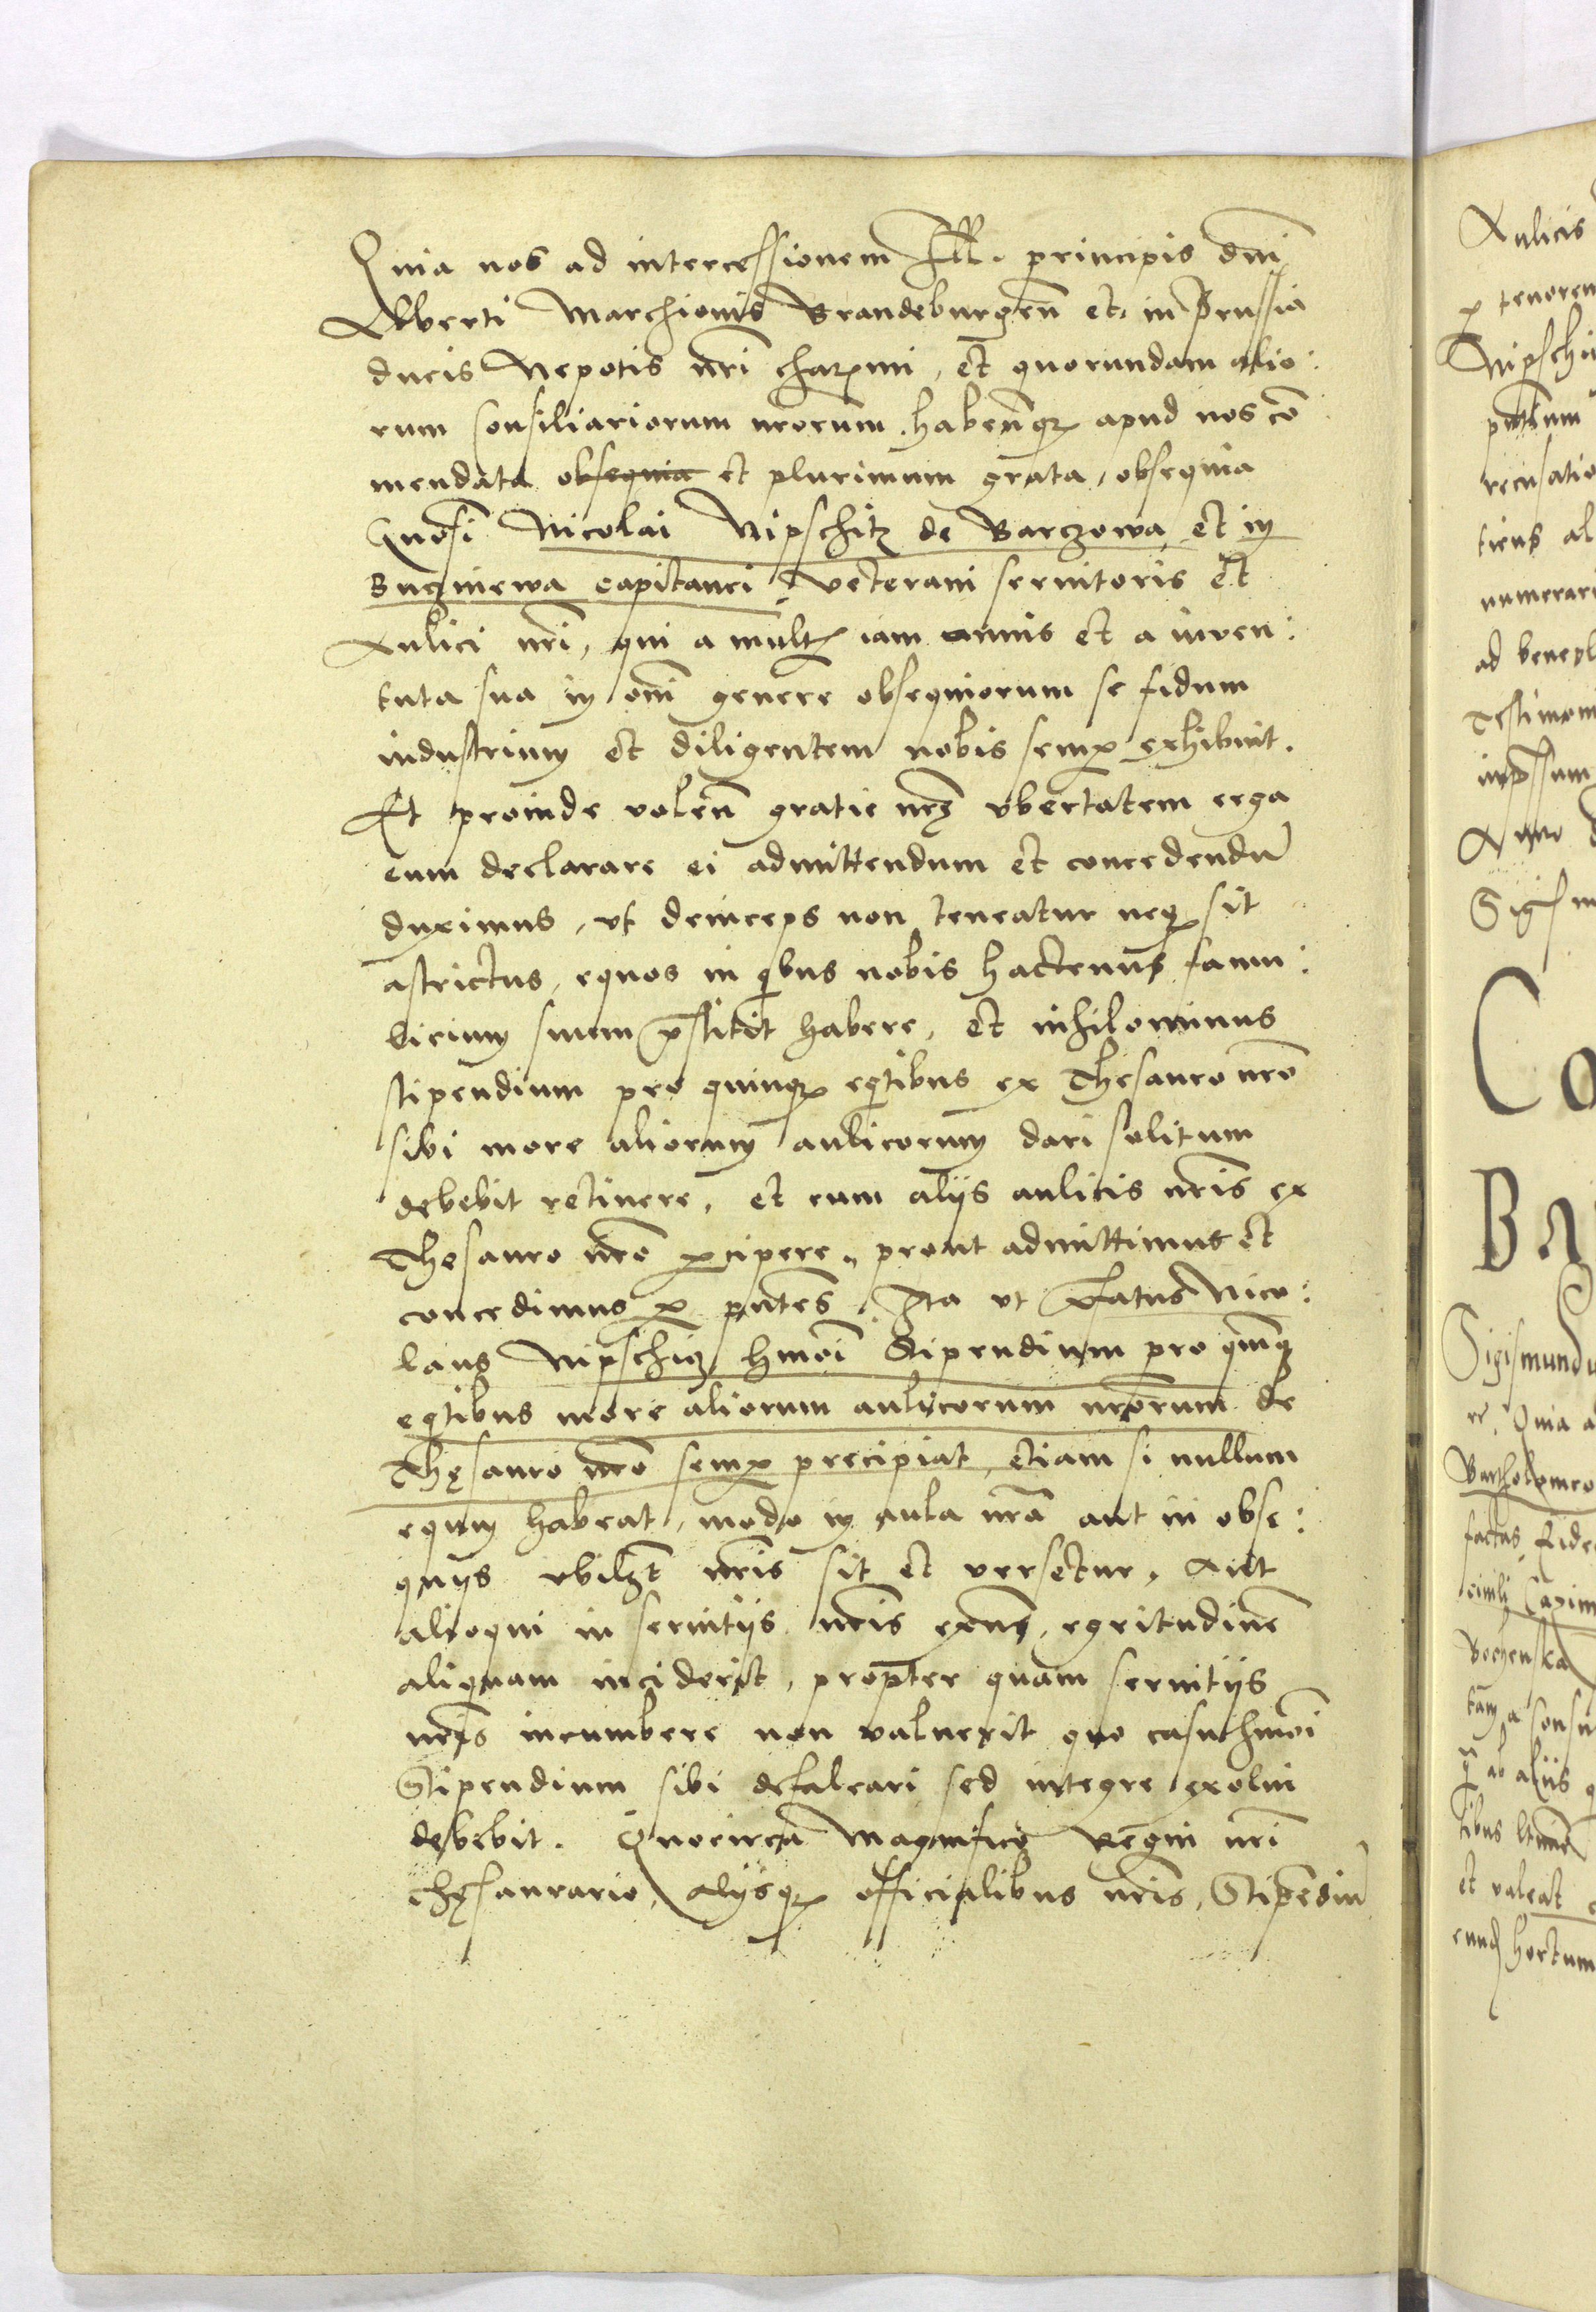 Quia nos ad intercessionem Ill. principis dni
Alberti Marchionis Brandeburgeñ etc in Prussia
ducis Nepotis nri charmi, et quorundam alio:
rum Consiliariorum nrorum. habenqz apud nos cō
mendata obsequia et plurimum grata, obsequia
Gnosi Nicolai Nipschitz de Barzowa et in
Buzinewa capitanei, veterani servitoris et
Aulici nri, qui a mult iam annis et a iuven:
tuta sua in omi genere obsequiorum se fidum
industrium et diligentem nobis semp exhibuit.
Et proinde voleñ gratie nrę vbertatem erga
eum declarare ei admittendum et concedendū
duximus, vt deinceps non teneatur neqz sit
astrictus, equos in qbus nobis hactenus famu:
licium suum pstitit habere, et nihilominus
stipendium pro quinqz eqtibus ex Thesauro nro
sibi more aliorum aulicorum dari solitum
debebit retinere, et cum alijs aulicis nris ex
Thesauro nro pcipere, prout admittimus et
concedimus p pntes. Ita vt pfatus Nico:
laus Nipschiz hmoi Stipendium pro qinqz
eqtibus more aliorum aulicorum nrorum de
Thęsauro nro semp precipiat, etiam si nullum
equm habeat, modo in aula nra aut in obse:
quijs vbilzt nris sit et versetur, Aut
alioqui in servitijs nris exns, egritudinē
aliquam inciderit, propter quam servitijs
nris incumbere non valuerit quo casu hmoi
Stipendium sibi defalcari sed integre exolui
debebit. Quocirca Magnifico Regni nri
thęsaurario, alijsqz officialibus nris, Stipendiū
Aulicis
p tenorem
Nipschi
recusatio
tiens al
numerari
ad benepl
Testimoni
impssum
Anno d
Sigism
Co
Sigismundu
re. Quia a
Bartholomeo
factas
et valeat
hortum